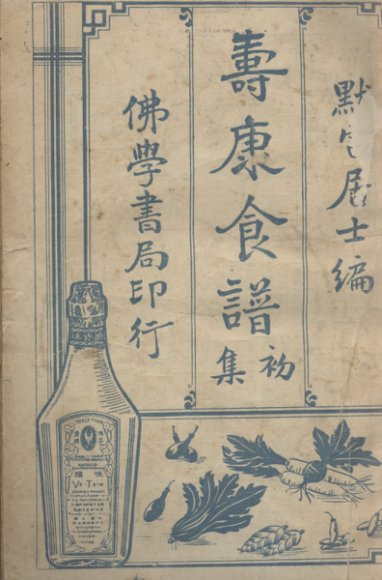 默
居士編
壽康食譜
初集
佛學書局印行
TRADE MARK
Ve-Tsin